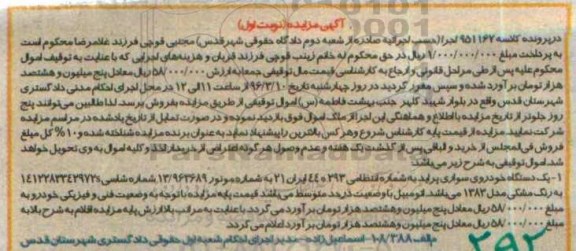 آگهی مزایده (نوبت اول)
در پرونده کلاسه ۹۵۱۱۶۲ اجرا (حسب اجرائیه صادره از شعبه دوم دادگاه حقوقی شهرقدس) مجتبی قوچی فرزند غلامرضا محکوم است
به پرداخت مبلغ ۹/۰۰۰/۰۰۰/۰۰۰ ریال در حق محکوم له خانم زینب قوچی فرزند قربان و هزینه‌های اجرایی که با عنایت به توقیف اموال
محکوم علیه پس از طی مراحل قانونی و ارجاع به کارشناسی قیمت مال توقیفی جمعا به ارزش ۵۸/۰۰۰/۰۰۰ ریال معادل پنج میلیون و هشتصد
هزار تومان برآورد شده و سپس مقرر گردید در روز چهارشنبه تاریخ ۹۶/۳/۱۰ از ساعت ۱۱ الی ۱۲ در محل اجرای احکام مدنی دادگستری
شهرستان قدس واقع در بلوار شهید کلهر جنب بهشت فاطمه (س) اموال توقیفی از طریق مزایده بفروش برسد. لذا طالبین می‌توانند پنج
روز جلوتر از تاریخ مزایده با اطلاع و هماهنگی این اجرا از ملک اموال فوق بازدید نموده و در صورت تمایل از تاریخ یادشده در مراسم مزایده
شرکت نمایند. مزایده از قیمت پایه کارشناس شروع و هر کس بالاترین را پیشنهاد نماید به عنوان برنده مزایده شناخته شده و ۱۰% کل مبلغ
فروش فی المجلس از خرید و الباقی پس از گذشت یک هفته و عدم وصول هرگونه اعتراضی از خریدار اخذ و کلیه اموال به وی تحویل خواهد
شد. اموال توقیفی به شرح زیر می‌باشد:
۱- یک دستگاه خودروی سواری پراید به شماره انتظامی ۲۹۳ ق ۴۴ ایران ۲۱ به شماره موتور ۱۳/۹۶۳۶۸۹ شماره شاسی
به رنگ مشکی مدل ۱۳۸۳ می‌باشد. اتومبیل با وضعیت در حد متوسط می‌باشد. قیمت پایه مزایده با توجه به وضعیت فنی و فیزیکی خودرو به
مبلغ ۵۸/۰۰۰/۰۰۰ ریال معادل پنج میلیون و هشتصد هزار تومان برآورد می‌گردد. با عنایت به مراتب بالا ارزش پایه مزایده اقلام به شرح بالا به
مبلغ ۵۸/۰۰۰/۰۰۰ ریال معادل پنج میلیون و هشتصد هزار تومان برآورد اعلام می‌گردد.
م/الف ۱۰۸/۳۸۸ اسماعیل زاده - مدیر اجرای احکام شعبه اول حقوقی دادگستری شهرستان قدس
۲۹۲